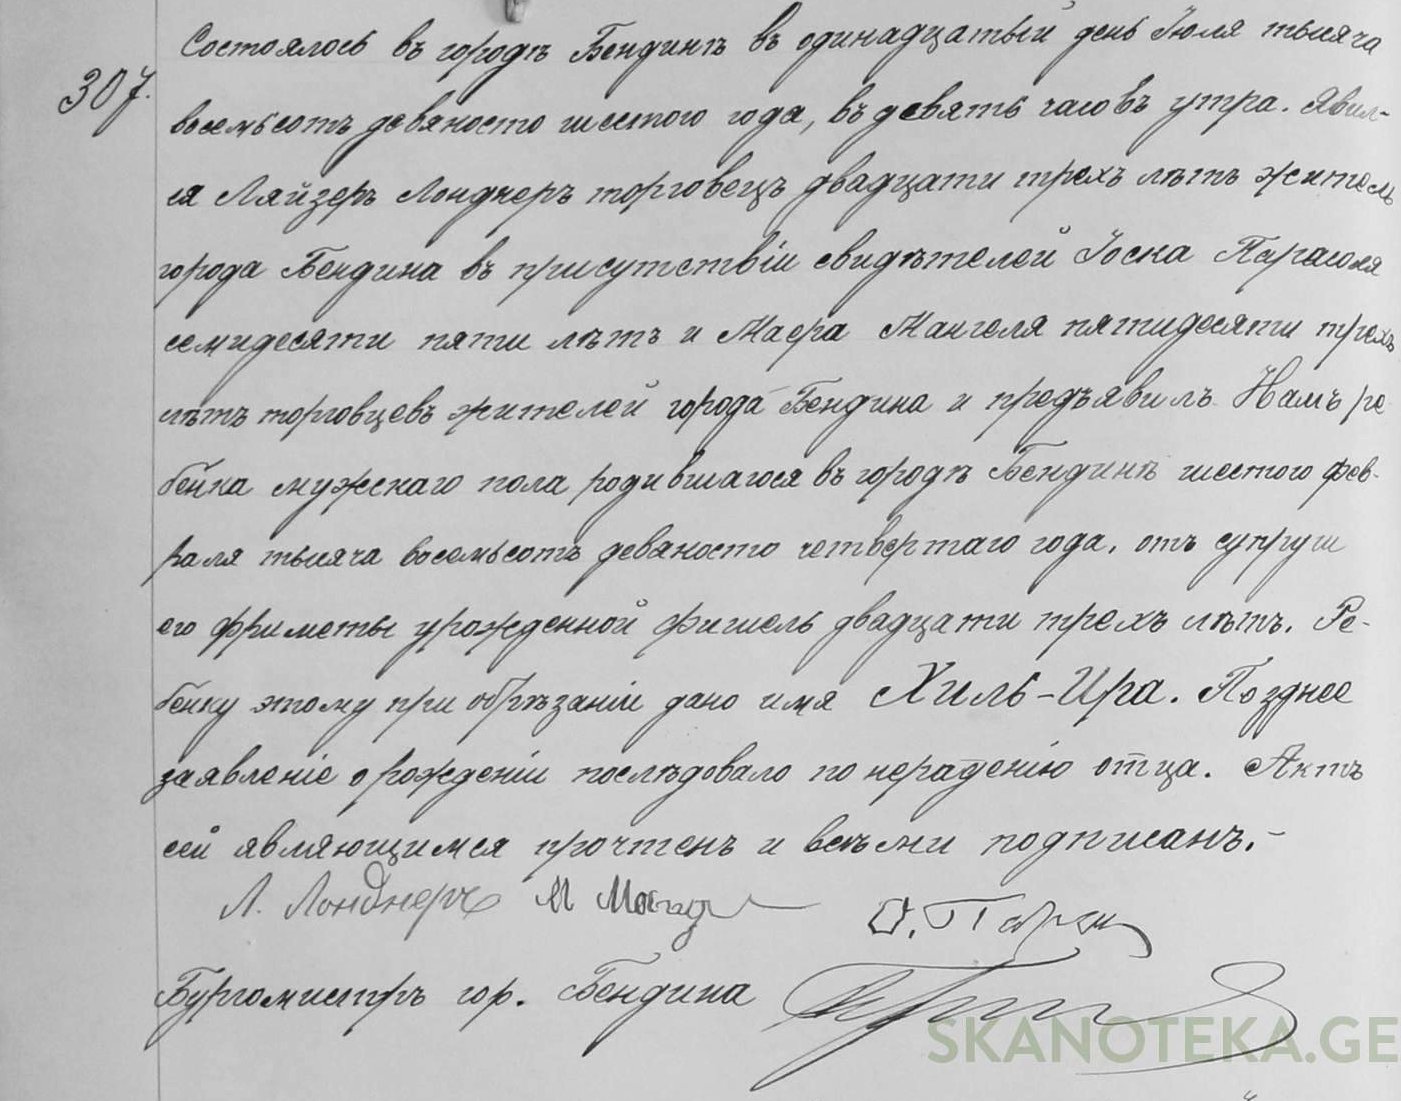 Состоялось въ городѣ Бендинѣ въ одинадцатый день Іюля тысяча
307.
восемьсотъ девяносто шестого года, въ девять часовъ утра. Явил-
ся Ляйзеръ Лонднеръ торговецъ двадцати трехъ лѣтъ житель
города Бендина въ присутствіи свидѣтелей Іоска Парасоля
семидесяти пяти лѣтъ и Маера Мангеля пятидесяти трехъ
лѣтъ торговцевъ жителей города Бендина и предъявилъ Намъ ре
бенка мужскаго пола родившагося въ городѣ Бендинѣ шестого фев-
раля тысяча восемьсотъ девяносто четвертаго года, отъ супруги
его Фриметы урожденной Фишель двадцати трехъ лѣтъ. Ре-
бенку этому при обрѣзаніи дано имя Хиль-Ира. Позднее
заявленіе о рожденіи послѣдовало по нерадѣнію отца. Актъ
сей являющимся прочтенъ и всѣми подписанъ.-
Л. Лонднеръ М
Бургомистръ гор. Бендина
SKANOTEKA.GE